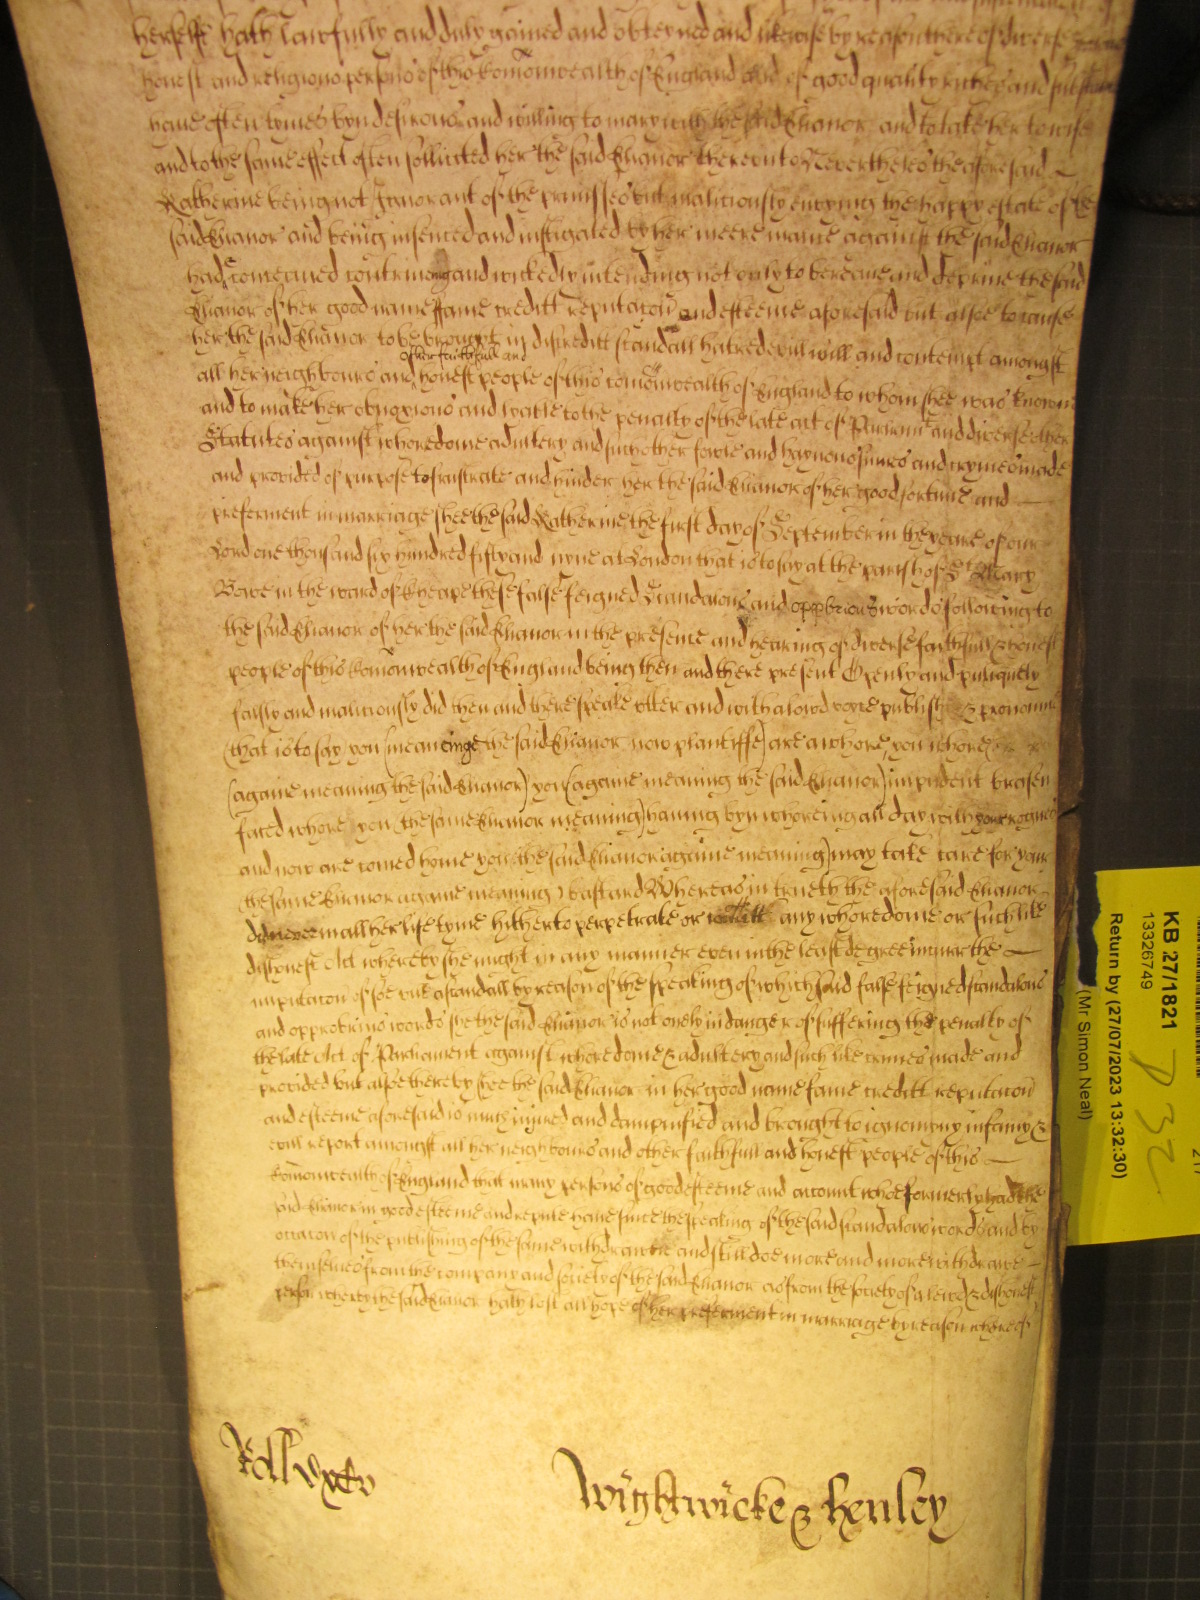 herselfe hath lawfully and duly gained and obteyned and likewise by reason thereof diverse
honest and religious persons of this Comonwealth of England and of good quality riches and substance
have often tymes byn desirous and willing to marry with the said Elianor and to take her to wife
and to the same effect often sollicited her the said Elianor thereunto Neverthelesse the aforesaid
Katherine being not Ignorant of the premisses but malitiously envying the happy estate of the
said Elianor and being incenced and instigated by her meere malice against the said Elianor
had conceived contriveing and wickedly intending not only to bereave and deprive the said
Elianor of her good name fame creditt reputacon and esteeme aforesaid but alsoe to cause
her the said Elianor to be brought in discreditt scandall hatred evill will and contempt amongst
all her neighbours and other faithfull and honest people of this comonwealth of England to whom shee was knowne
and to make her obnoxious and lyable to the penalty of the late act of Parliamt and diverse other
Statutes against whoredome adultery and such other fowle and haynous sinnes and crymes made
and provided of purpose to frustrate and hinder her the said Elianor of her good fortune and
preferment in marriage shee the said Katherine the first day of September in the yeare of our
Lord one thousand six hundred fifty and nyne at London that is to say at the parish of St Mary
Bowe in the ward of Cheape these false feigned scandalous and opprobrious words following to
the said Elianor of her the said Elianor in the presence and hearing of diverse faithfull & honest
people of this Comonwealth of England being then and there present Openly and publiquely
falsly and malitiously did then and there speake utter and with a lowd voyce publish & pronounce
(that is to say you (meaneinge the said Elianor now plantiffe) are a whore, you whore
(againe meaning the said Elianor) you (againe meaning the said Elianor) impudent brasen
faced whore you (the same Elianor meaning) haveing byn whoreing all day with your rogues
and now are comed home you (the said Elianor againe meaning) may take care for your
(the same Elianor againe meaning) bastard Whereas in trueth the aforesaid Elianor
did never in all her life tyme hitherto perpetrate or comitt any whoredome or such like
dishonest Act whereby she might in any manner even in the least degree incurr the
imputacon of soe vile a scandall by reason of the speaking of which said false feigned scandalous
and opprobrius words she the said Elianor is not onely in danger of suffering the penalty of
the late Act of Parliament against whoredome & adultery and such like crimes made and
provided but alsoe thereby shee the said Elianor in her good name fame creditt reputacon
and esteeme aforesaid is much injured and dampnified and brought to ignominy infamy &
evill report amongst all her neighbours and other faithfull and honest people of this
Comonwealth of England that many persons of good esteeme and account whoe formerly had the
said Elianor in good esteeme and repute have since the speaking of the said scandalous words and by
occacon of the publishing of the same withdrawne and still doe more and more withdrawe
themselves from the company and society of the said Elianor as from the society of a lewd & dishonest
person whereby the said Elianor hath lost all hope of her preferment in marriage by reason whereof
Wightwicke & Henley
KB 27/1821
13326749
Return by (27/07/2023 13:32:30)
(Mr Simon Neal)
D 32